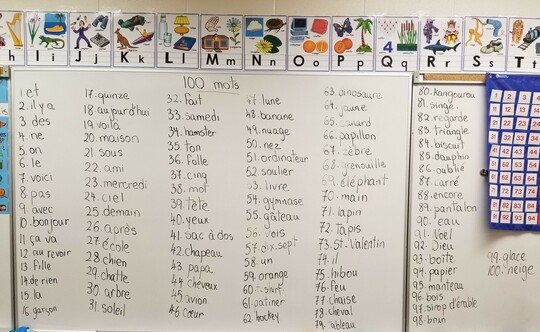 h
Ii
Jj
Kk
Ll
Mm
Nn
Oo
Pp
Qq
Rr
Ss
Tt
100 mots
1. et
2. il y a
3. des
4. ne
5. on
6. le
7. voici
8. pas
9. avec
10. bonjour
11. ça va
12. au revoir
13. fille
14. de rien
15. la
16. garçon
17. quinze
18. aujourd'hui
19. voilà
20. maison
21. sous
22. ami
23. mercredi
24. ciel
25. demain
26. après
27. école
28. chien
29. chatte
30. arbre
31. soleil
32. fait
33. samedi
34. hamster
35. ton
36. folle
37. cinq
38. moi
39. tête
40. yeux
41. sac à dos
42. chapeau
43. papa
44. cheveux
45. avion
46. cœur
47. lune
48. banane
49. nuage
50. nez
51. ordinateur
52. soulier
53. livre
54. gymnase
55. gâteau
56. vois
57. dix-sept
58. un
59. orange
60. t-shirt
61. patiner
62. hockey
63. dinosaure
64. jaune
65. canard
66. papillon
67. zèbre
68. grenouille
69. éléphant
70. main
71. lapin
72. tapis
73. st-Valentin
74. il
75. hibou
76. feu
77. chaise
78. cheval
79. tableau
80. kangourou
81. singe
82. regarde
83. triangle
84. biscuit
85. dauphin
86. oublié
87. carré
88. encore
89. pantalon
90. eau
91. Noël
92. Dieu
93. boîte
94. papier
95. manteau
96. bois
97. sirop d'érable
98. brun
99. glace
100. neige